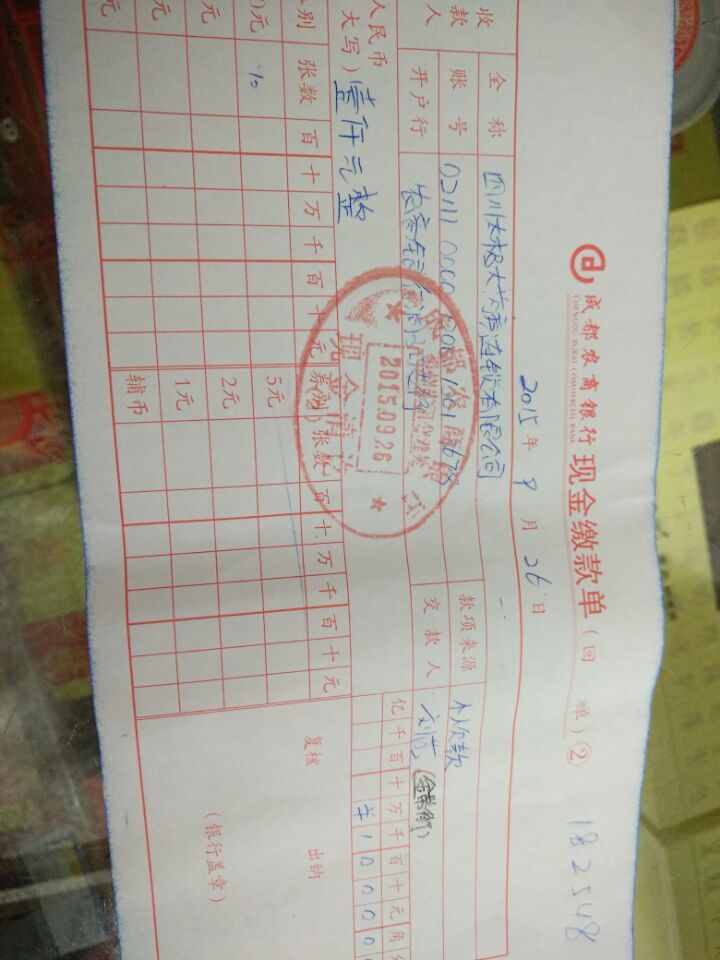 成都农商银行 现金缴款单（回 单）② 182548
CHENGDU RURAL COMMERCIAL BANK
2015 年 9 月 26 日
收款人
全 称 四川太极大药房连锁有限公司
账 号
开户行
款项来源
交 款 人
人民币
大写） 壹仟元整
亿 千 百 十 万 千 百 十 元 角
¥ 1 0 0 0 0 0
别 张数 百 十 万 千 百 十 元 券别 张数 百 十 万 千 百 十 元
0元 10 5元
元 2元
元 1元
元 辅币
2015.09.26
现金清讫
复核 出纳
（银行盖章）